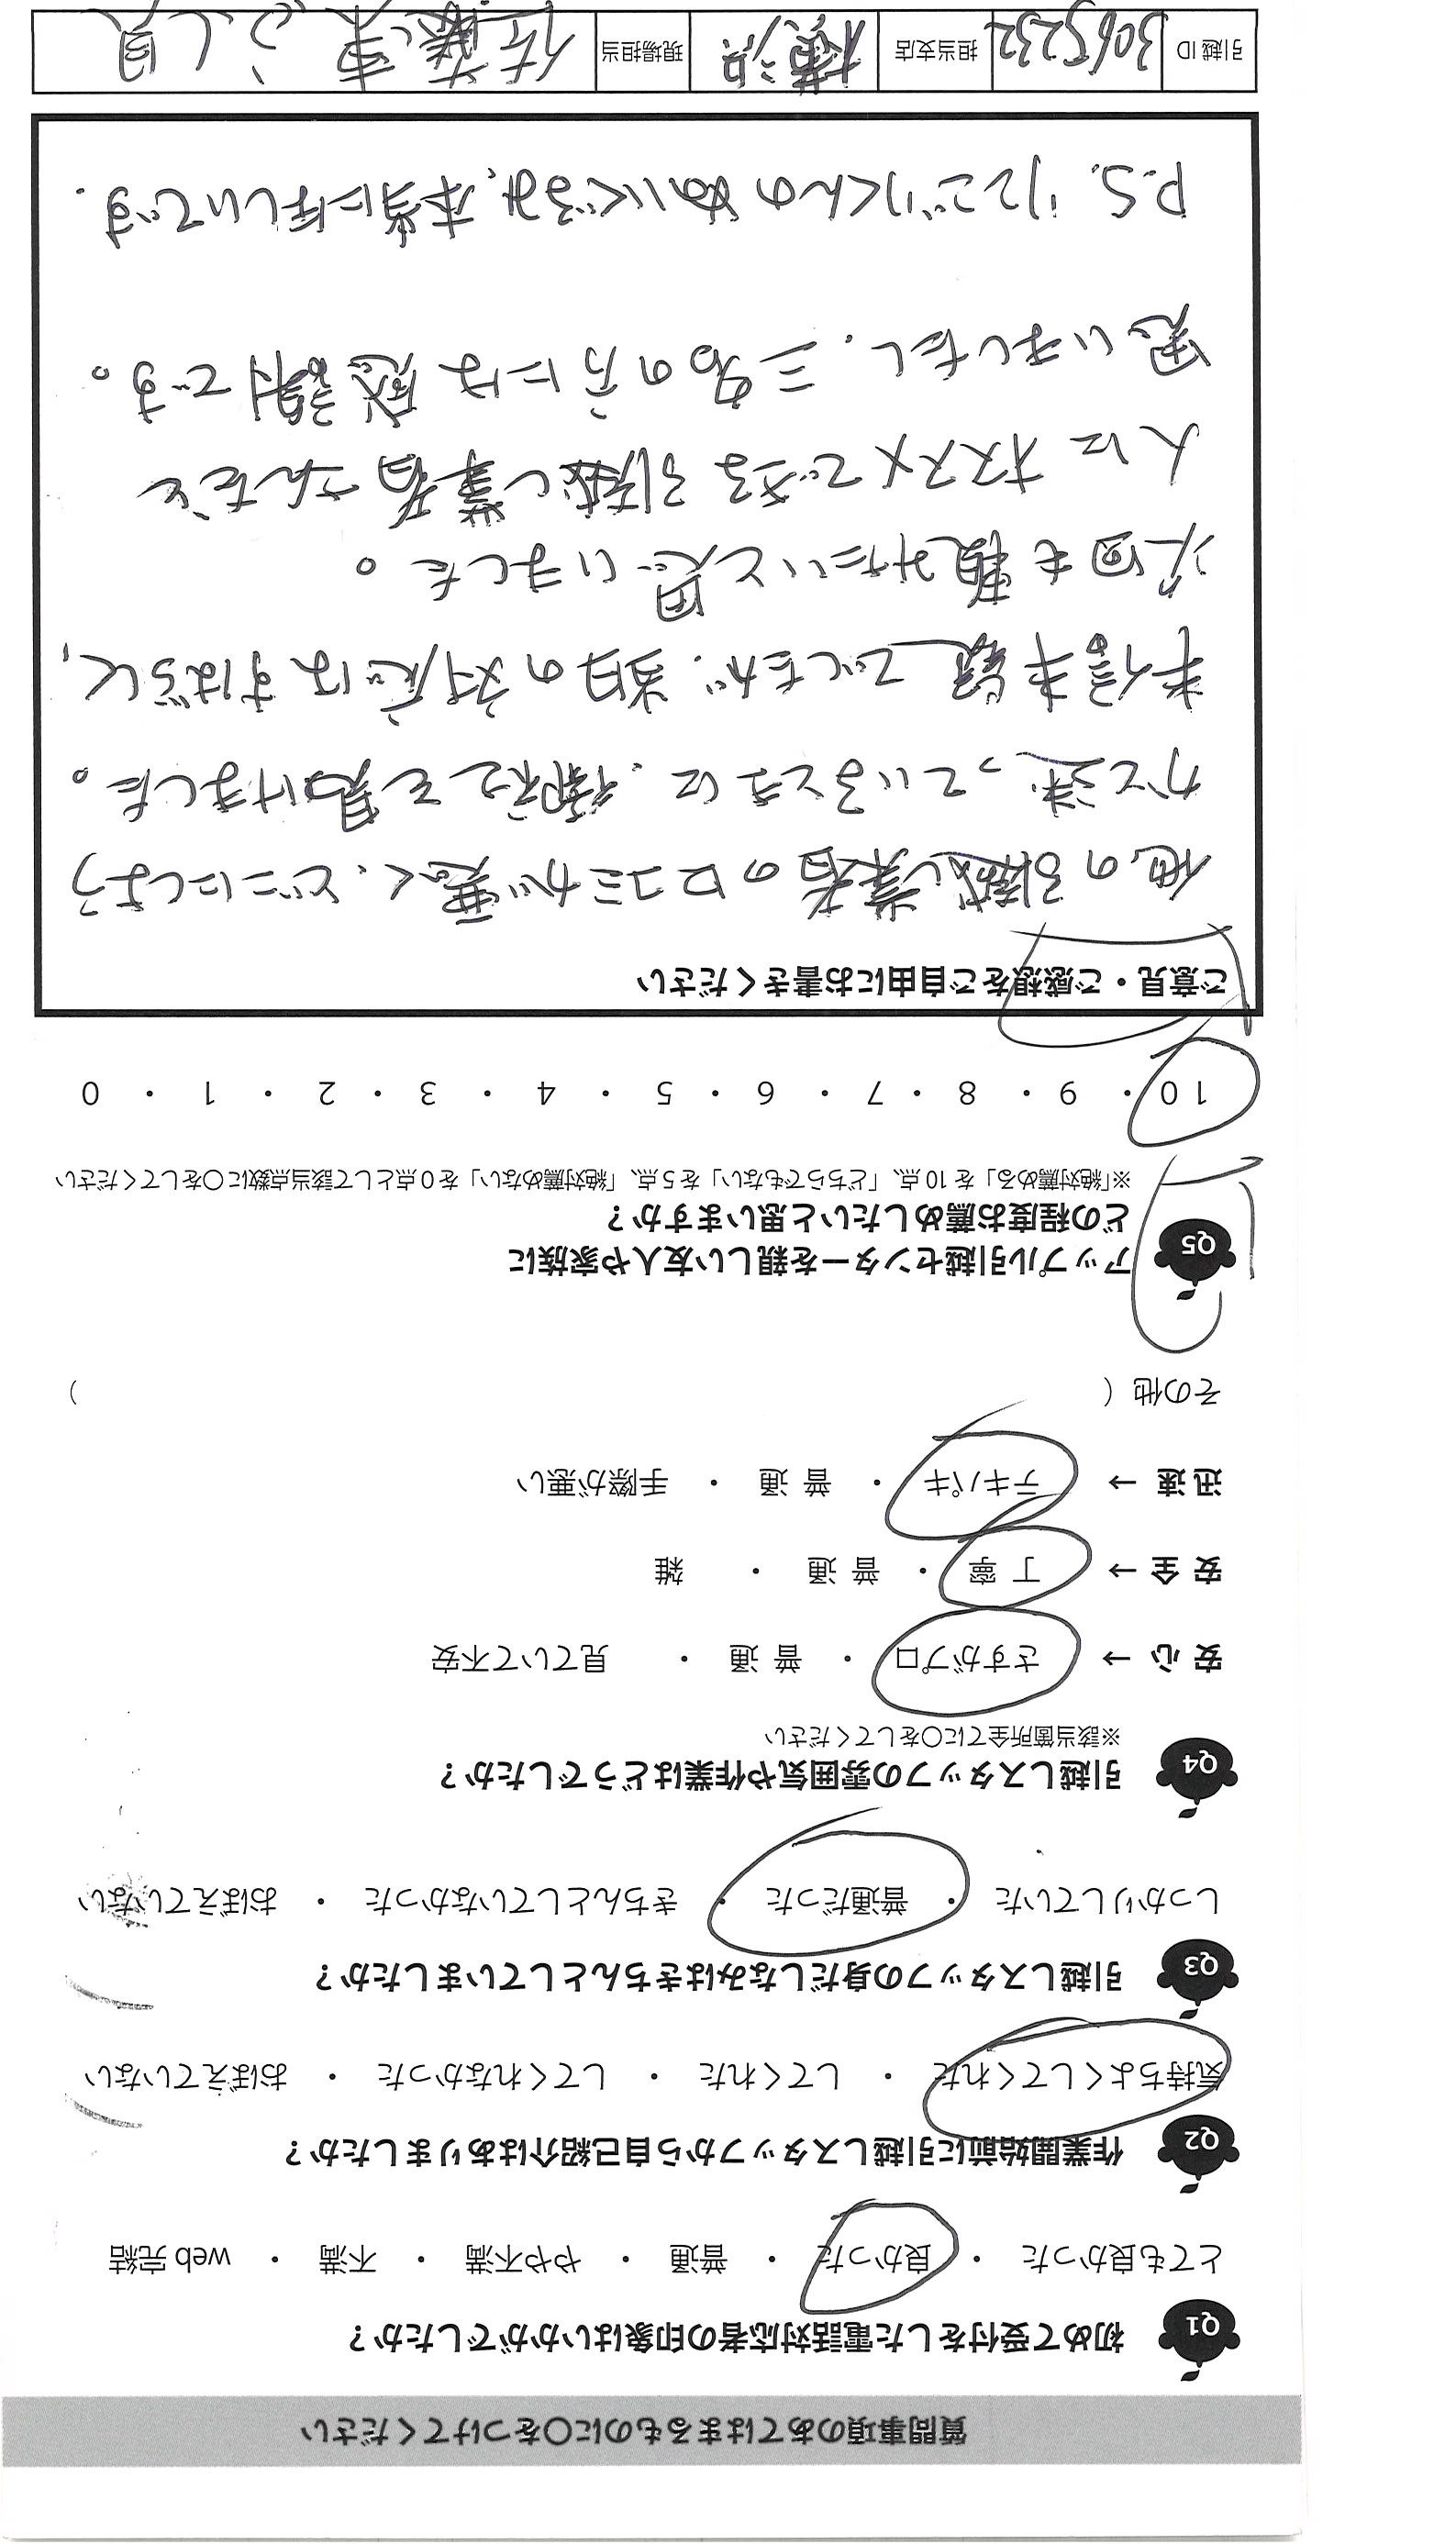 質問事項のあてはまるものに〇をつけてください
Q1 初めて受付をした電話対応者の印象はいかがでしたか？
とても良かった ・ 良かった ・ 普通 ・ やや不満 ・ 不満 ・ web 完結
Q2 作業開始前に引越しスタッフから自己紹介はありましたか？
気持ちよくしてくれた ・ してくれた ・ してくれなかった ・ おぼえていない
Q3 引越しスタッフの身だしなみはきちんとしていましたか？
しっかりしていた ・ 普通だった ・ きちんとしていなかった ・ おぼえていない
Q4 引越しスタッフの雰囲気や作業はどうでしたか？
※該当箇所全てに〇をしてください
安 心 → さすがプロ ・ 普 通 ・ 見ていて不安
安 全 → 丁 寧 ・ 普 通 ・ 雑
迅 速 → テキパキ ・ 普 通 ・ 手際が悪い
その他（ ）
Q5 アップル引越センターを親しい友人や家族に
どの程度お薦めしたいと思いますか？
※「絶対薦める」を 10 点、「どちらでもない」を 5 点、「絶対薦めない」を 0 点として該当点数に〇をしてください
10 ・ 9 ・ 8 ・ 7 ・ 6 ・ 5 ・ 4 ・ 3 ・ 2 ・ 1 ・ 0
ご意見・ご感想をご自由にお書きください
他の引越し業者の口コミが悪く、どこにしよう
かと迷っているときに、御社を見つけました。
半信半疑でしたが、当日の対応はすばらしく、
次回も頼みたいと思いました。
人にオススメできる引越し業者さんだと
思いましたし、三名の方には感謝です。
P.S. りんごりくんのぬいぐるみ、本当に欲しいです.
引越 ID 3065232 担当支店 横浜 現場担当 佐藤